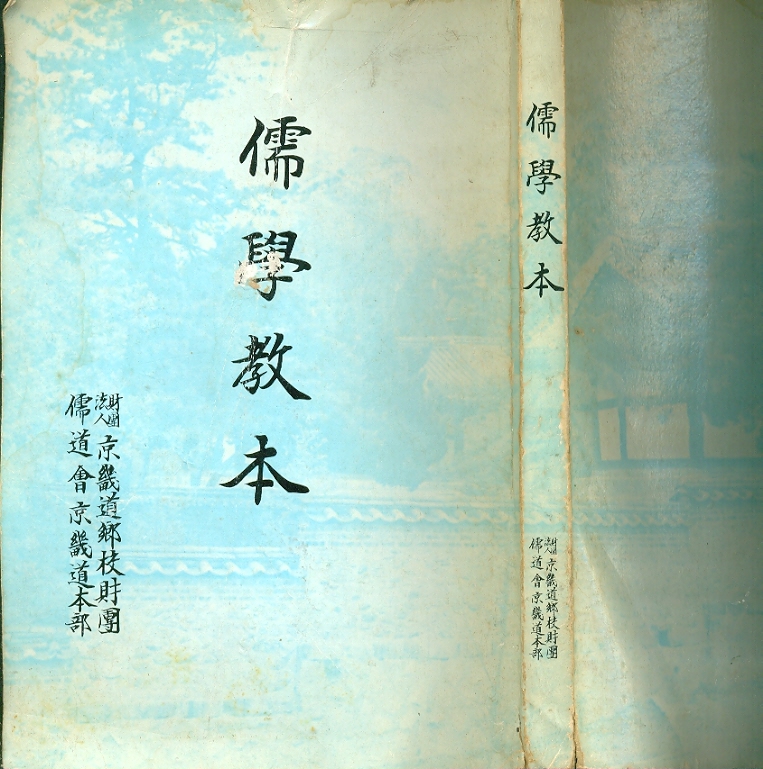 儒學教本
財團法人 京畿道鄉校財團
儒道會京畿道本部
儒學教本
財團法人 京畿道鄉校財團
儒道會京畿道本部